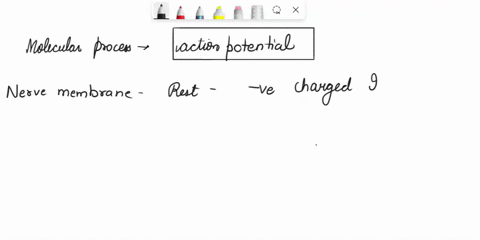 Molecular process → action potential
Nerve membrane - Rest - -ve charged I